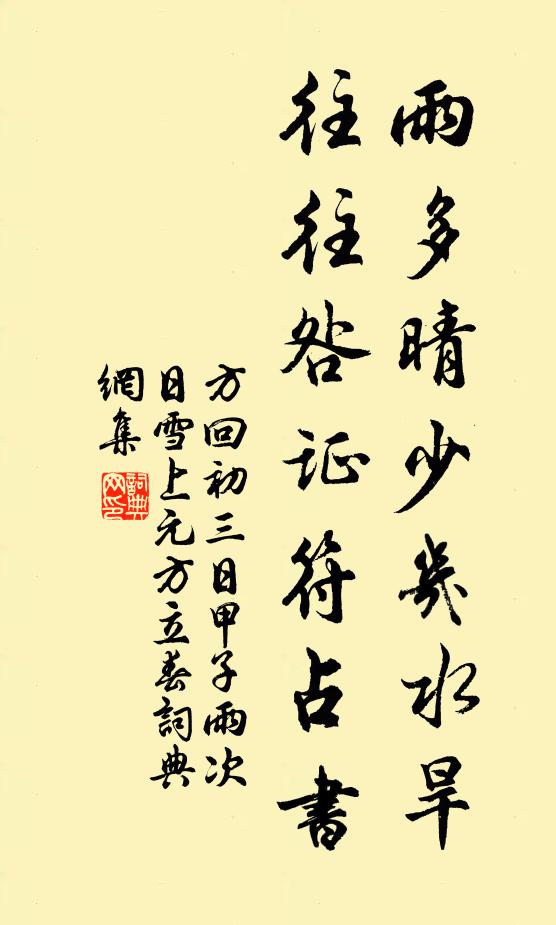 雨多晴少幾水旱
往往咎证符占書
方回初三日甲子雨次
日雪上元方立春詞典
網集
詞典
网印